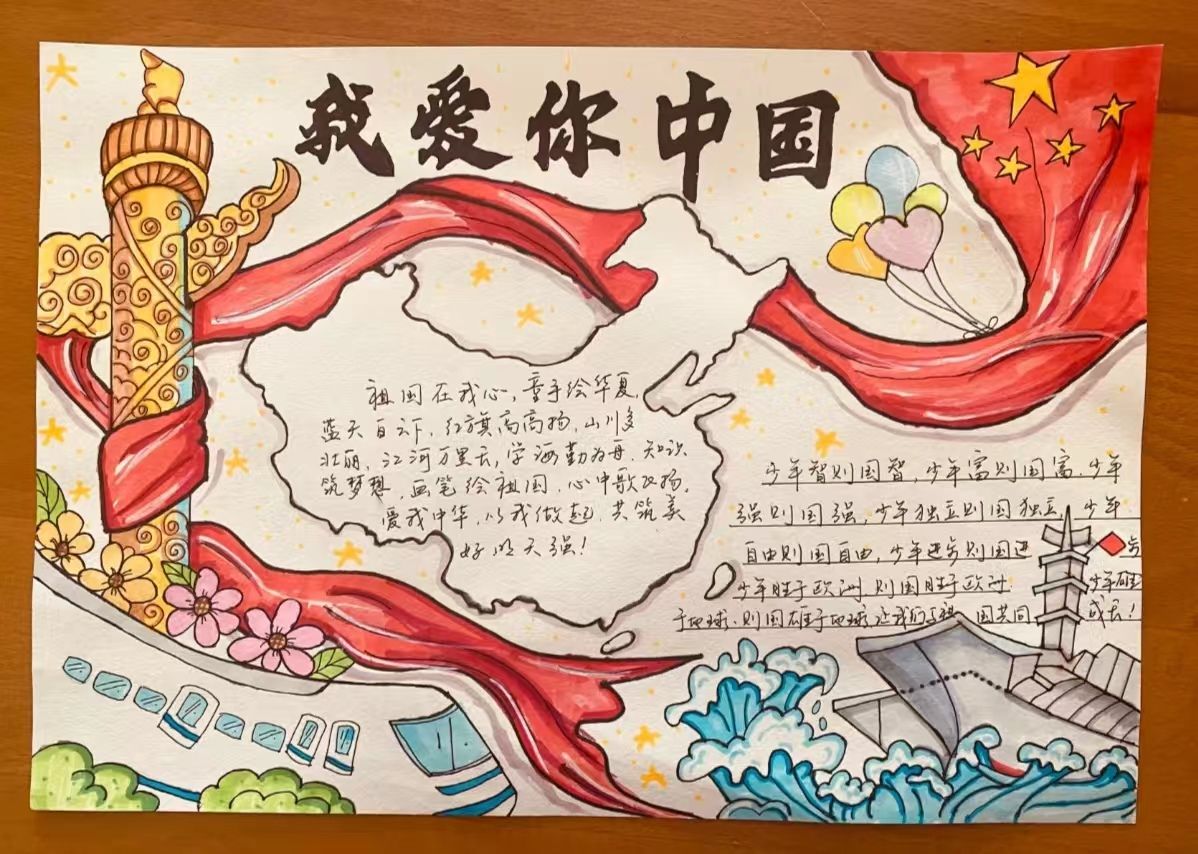 我爱你中国
祖国在我心,童手绘华夏,
蓝天白云下,红旗高高扬,山川多
壮丽,江河万里长,学海勤为舟,知识
筑梦想,画笔绘祖国,心中歌飞扬,
爱我中华,从我做起,共筑美
好明天强!
少年智则国智,少年富则国富,少年
强则国强,少年独立则国独立,少年
自由则国自由,少年进步则国进步
少年胜于欧洲,则国胜于欧洲 少年雄
于地球,则国雄于地球,让我们与祖国共同成长!